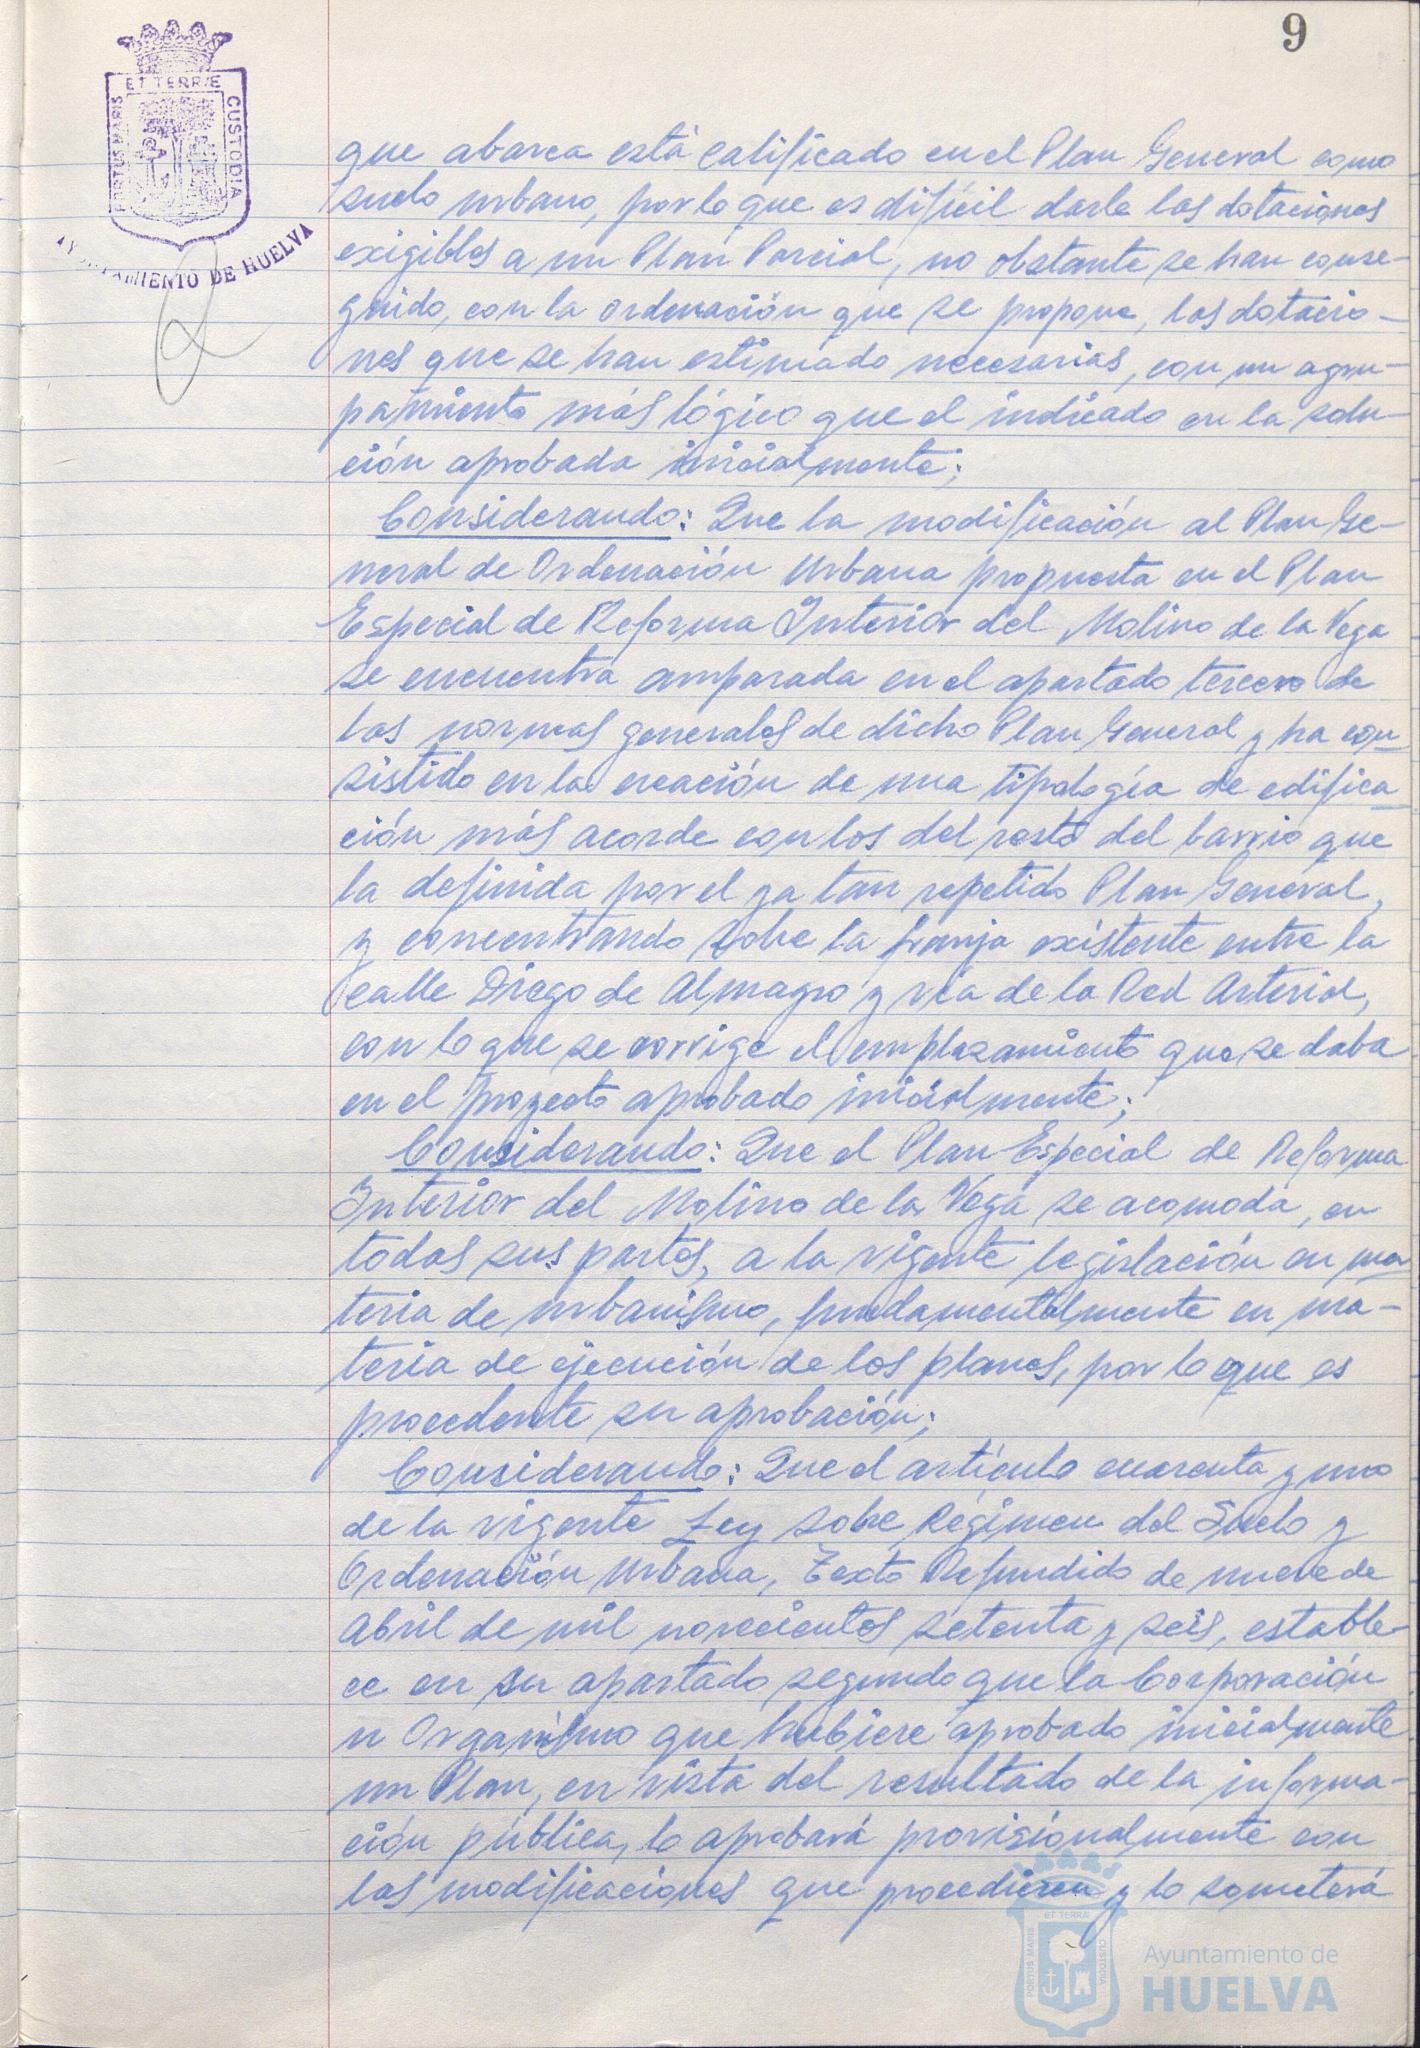 9
ET TERRÆ
PORTUS MARIS
CUSTODIA
AYUNTAMIENTO DE HUELVA
que abarca está calificado en el Plan General como
suelo urbano, por lo que es difícil darle las dotaciones
exigibles a un Plan Parcial, no obstante se han conse-
guido, con la ordenación que se propone, las dotacio-
nes que se han estimado necesarias, con un agru-
pamiento más lógico que el indicado en la solu-
ción aprobada inicialmente;
Considerando: Que la modificación al Plan Ge-
neral de Ordenación Urbana propuesta en el Plan
Especial de Reforma Interior del Molino de la Vega
se encuentra amparada en el apartado tercero de
las normas generales de dicho Plan General y ha con-
sistido en la creación de una tipología de edifica-
ción más acorde con los del resto del barrio que
la definida por el ya tan repetido Plan General,
y concentrando sobre la franja existente entre la
calle Diego de Almagro y vía de la Red Arterial,
con lo que se corrige el emplazamiento que se daba
en el proyecto aprobado inicialmente;
Considerando: Que el Plan Especial de Reforma
Interior del Molino de la Vega se acomoda, en
todas sus partes, a la vigente legislación en ma-
teria de urbanismo, fundamentalmente en ma-
teria de ejecución de los planes, por lo que es
procedente su aprobación;
Considerando: Que el artículo cuarenta y uno
de la vigente Ley sobre Régimen del Suelo y
Ordenación Urbana, Texto Refundido de nueve de
Abril de mil novecientos setenta y seis, estable-
ce en su apartado segundo que la Corporación
u Organismo que hubiere aprobado inicialmente
un Plan, en vista del resultado de la informa-
ción pública, lo aprobará provisionalmente con
las modificaciones que procedieren y lo someterá
ET TERRA
PORTUS MARIS
CUSTODIA
Ayuntamiento de
HUELVA